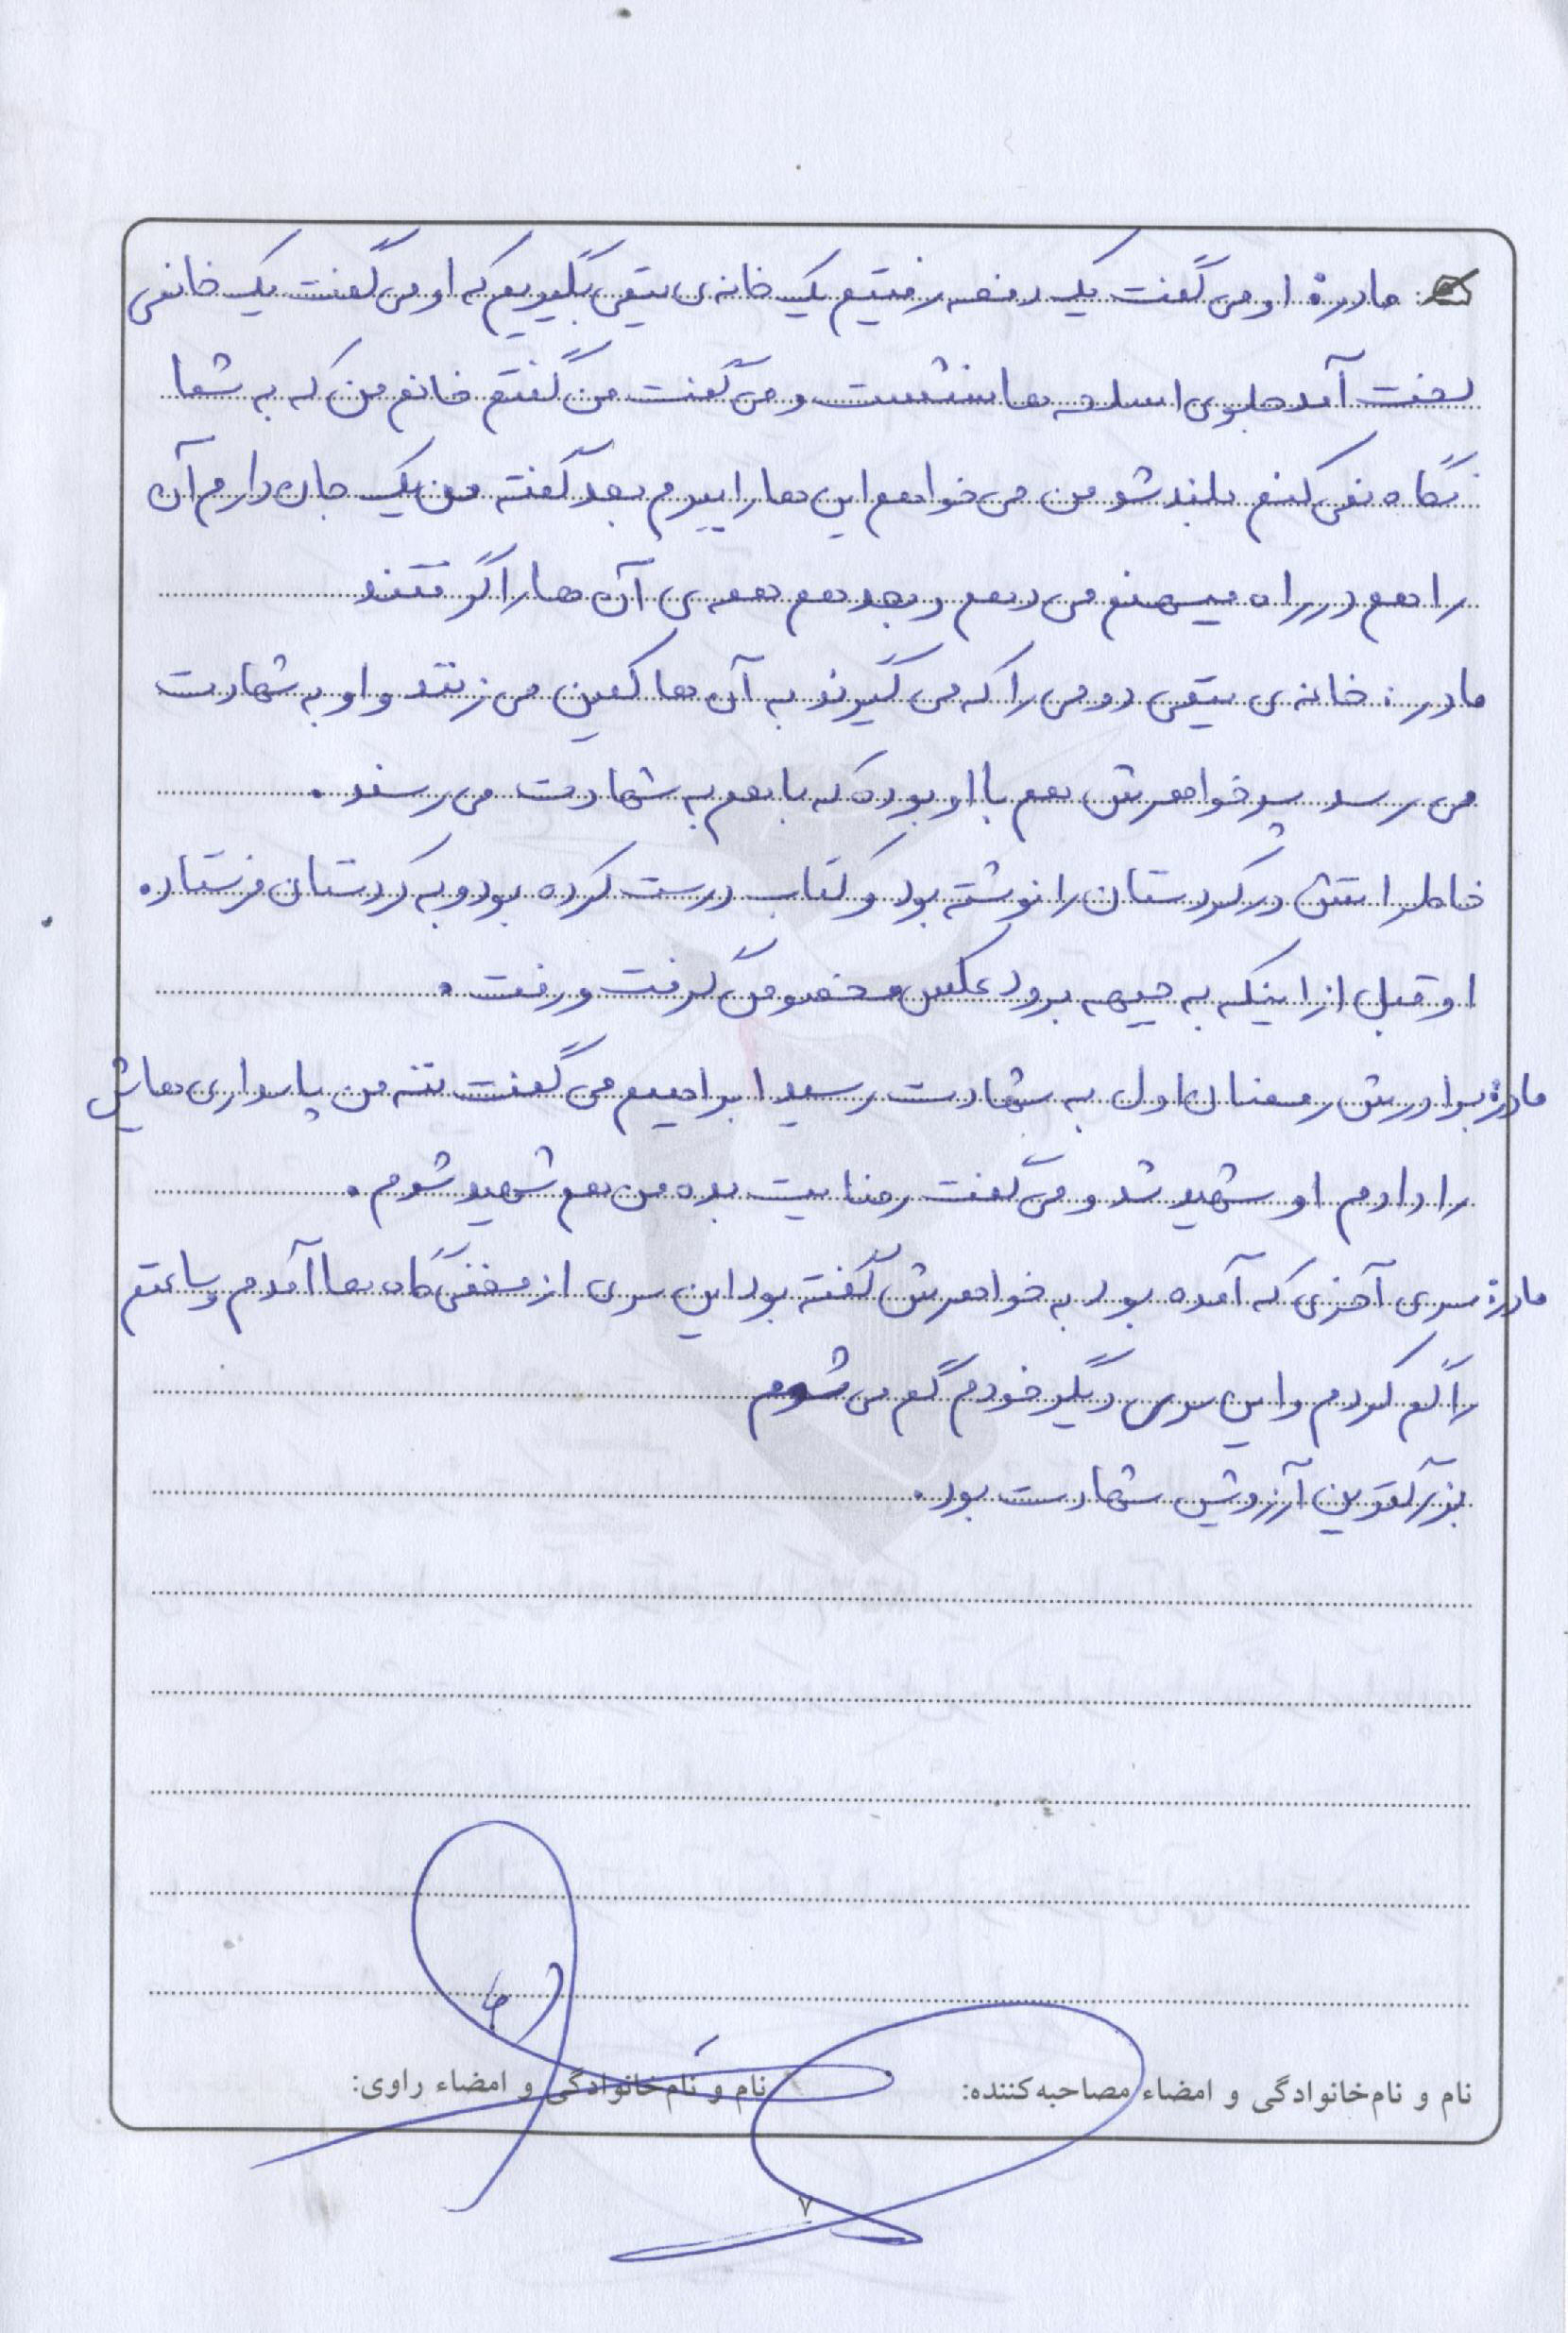 مادر: او می گفت یک دفعه رفتیم یک خانه ی تیمی بگیریم که او می گفت یک خانمی
لخت آمد جلوی اسلحه ها نشست و می گفت من گفتم خانم من که به شما
نگاه نمی کنم بلند شو من می خواهم این ها را ببرم بعد گفته من یک جان دارم آن
را هم در راه میهنم می دهم و بعد هم همه ی آن ها را گرفتند
مادر: خانه ی تیمی دومی را که می گیرند به آن ها کمین می زنند و او به شهادت
می رسد پسر خواهرش هم با او بوده که با هم به شهادت می رسند.
خاطراتش در کردستان را نوشته بود و کتاب درست کرده بود و به کردستان فرستاده
او قبل از اینکه به جبهه برود عکس مخصوص گرفت و رفت.
مادر: برادرش رمضان اول به شهادت رسید ابراهیم می گفت ننه من پاسداری هایش
را دادم او شهید شد و می گفت رضایت بده من هم شهید شوم.
مادر: سری آخری که آمده بود به خواهرش گفته بود این سری از مخفی گاه ها آمدم و ساعتم
را گم کردم و این سری دیگر خودم گم می شوم
بزرگترین آرزویش شهادت بود.
نام و نام‌خانوادگی و امضاء مصاحبه‌کننده: نام و نام‌خانوادگی و امضاء راوی:
۷